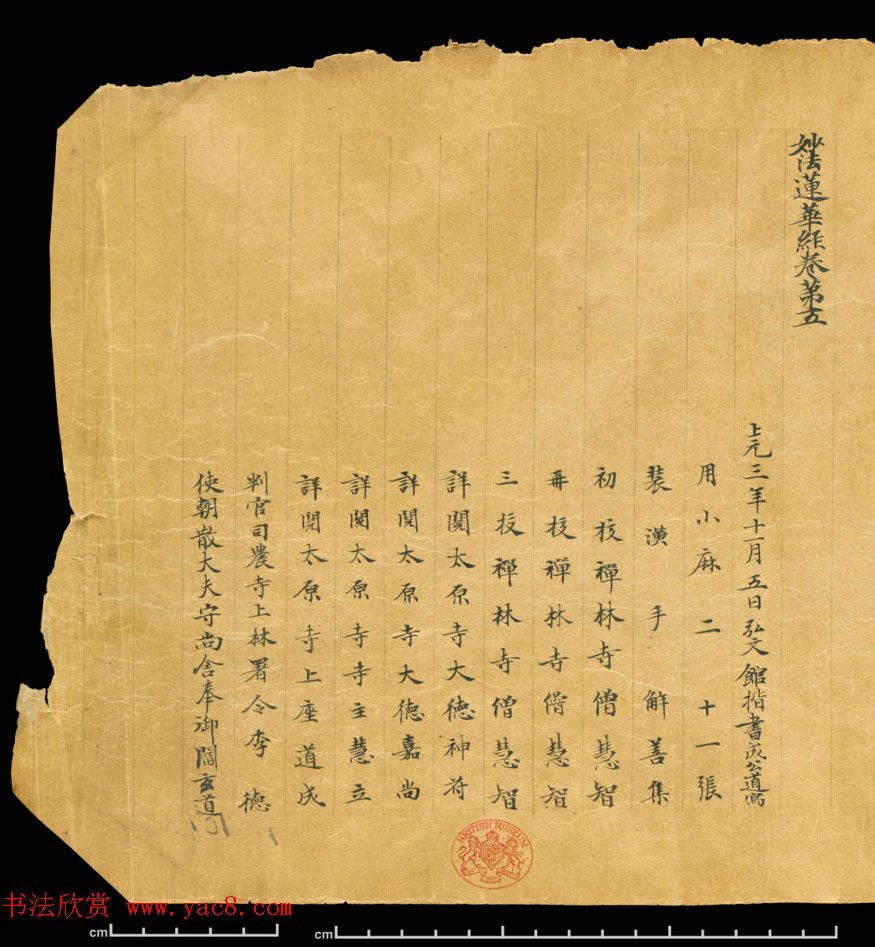 妙法蓮華経卷第五
上元三年十一月五日弘文館楷書成公道寫
用小麻二十一張
裝潢手解善集
初挍禪林寺僧慧智
再挍禪林寺僧慧智
三挍禪林寺僧慧智
詳閱太原寺大德神符
詳閱太原寺大德嘉尚
詳閱太原寺寺主慧立
詳閱太原寺上座道成
判官司農寺上林署令李德
使朝散大夫守尚舍奉御閻玄道
BRITISH MUSEUM
书法欣赏 www.yac8.com
cm
cm